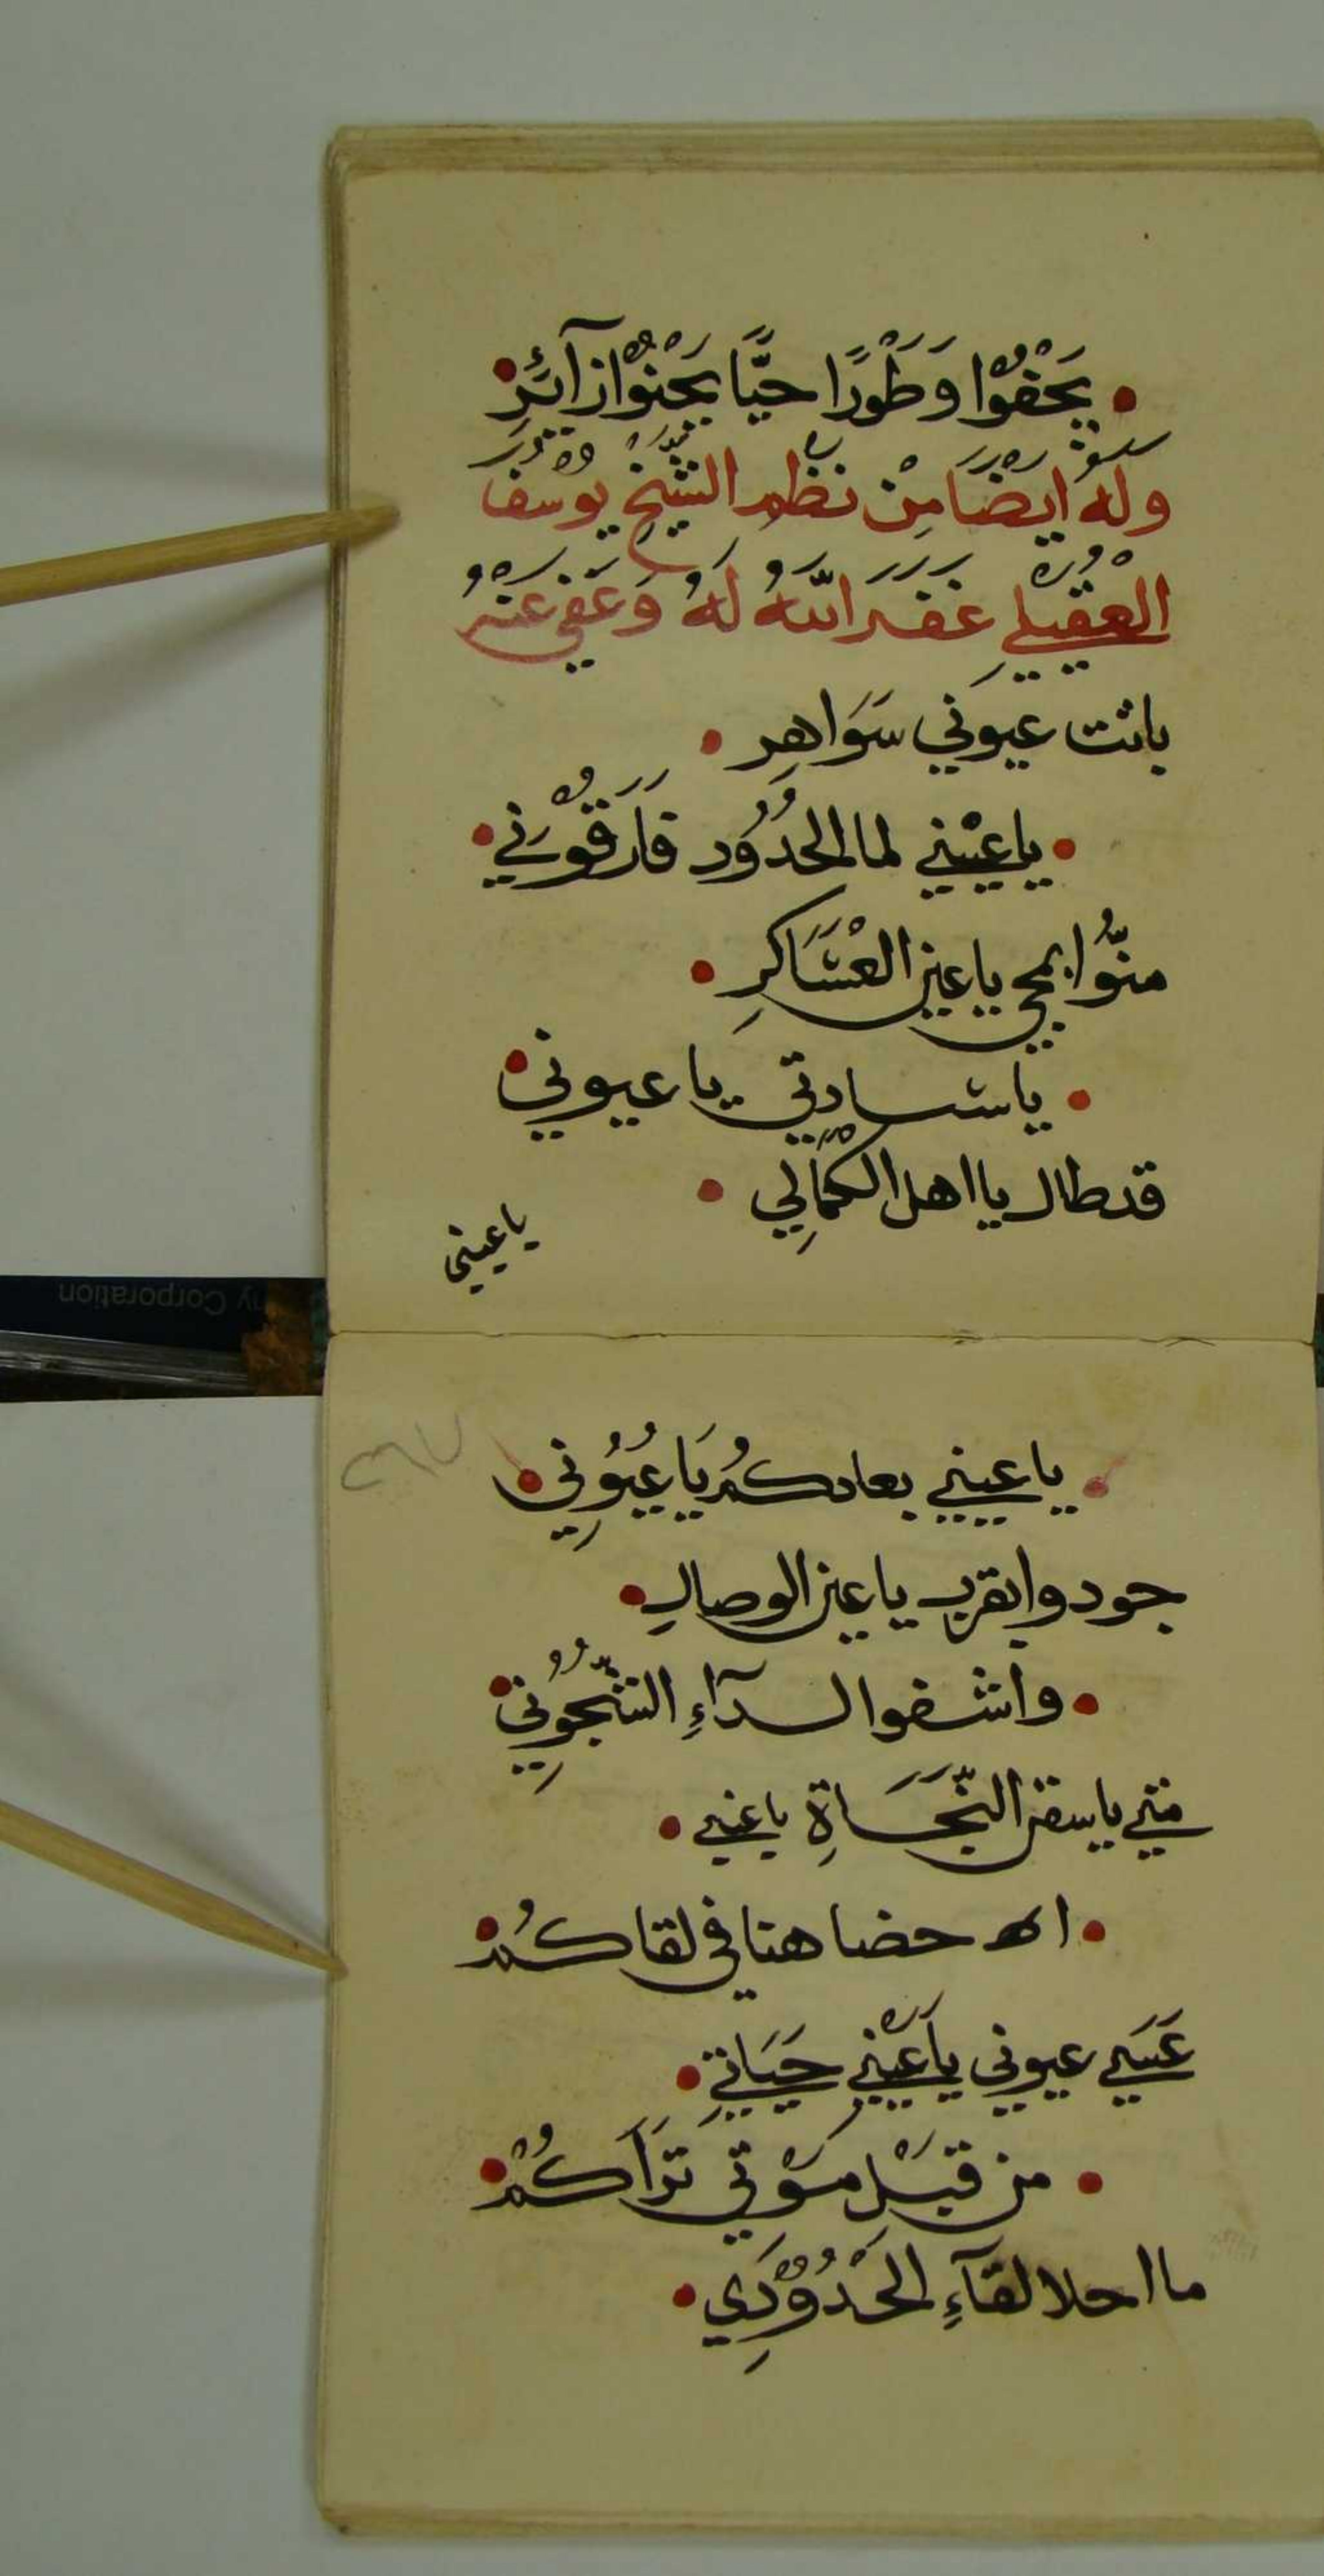 يَجْفُوْا وَطَوْرًا حيًّا يَجْنوُا زآئِرْ
وله ايضًا مِنْ نظم الشَّيْخ يوسف
العُقيلي غفَر اللهُ لهُ وَعَفي عنهُ
باتت عيوني سَوَاهِر
يا عيْني لما الحدُوُد فارقُوني
منُّوا بمجي يا عين العْسَاكرِ
يا سادتي يا عيوني
قد طال يا اهل الكمالِي
يا عيني
٣٧
يا عيني بعادكُم يَا عُيُوُنِي
جودوا بقرب يا عين الوصالِ
واشفوا لدآءِ الشُّجُونِي
متي يا سفن النَّجَاةِ يا عيني
احضا هنا في لقاكُم
عَسَي عيوني يا عيْني حَيَاتِي
من قبْل موْتي تَرَاكُمْ
ما احلا لقآءِ الحُدُوْدِي
ny Corporation